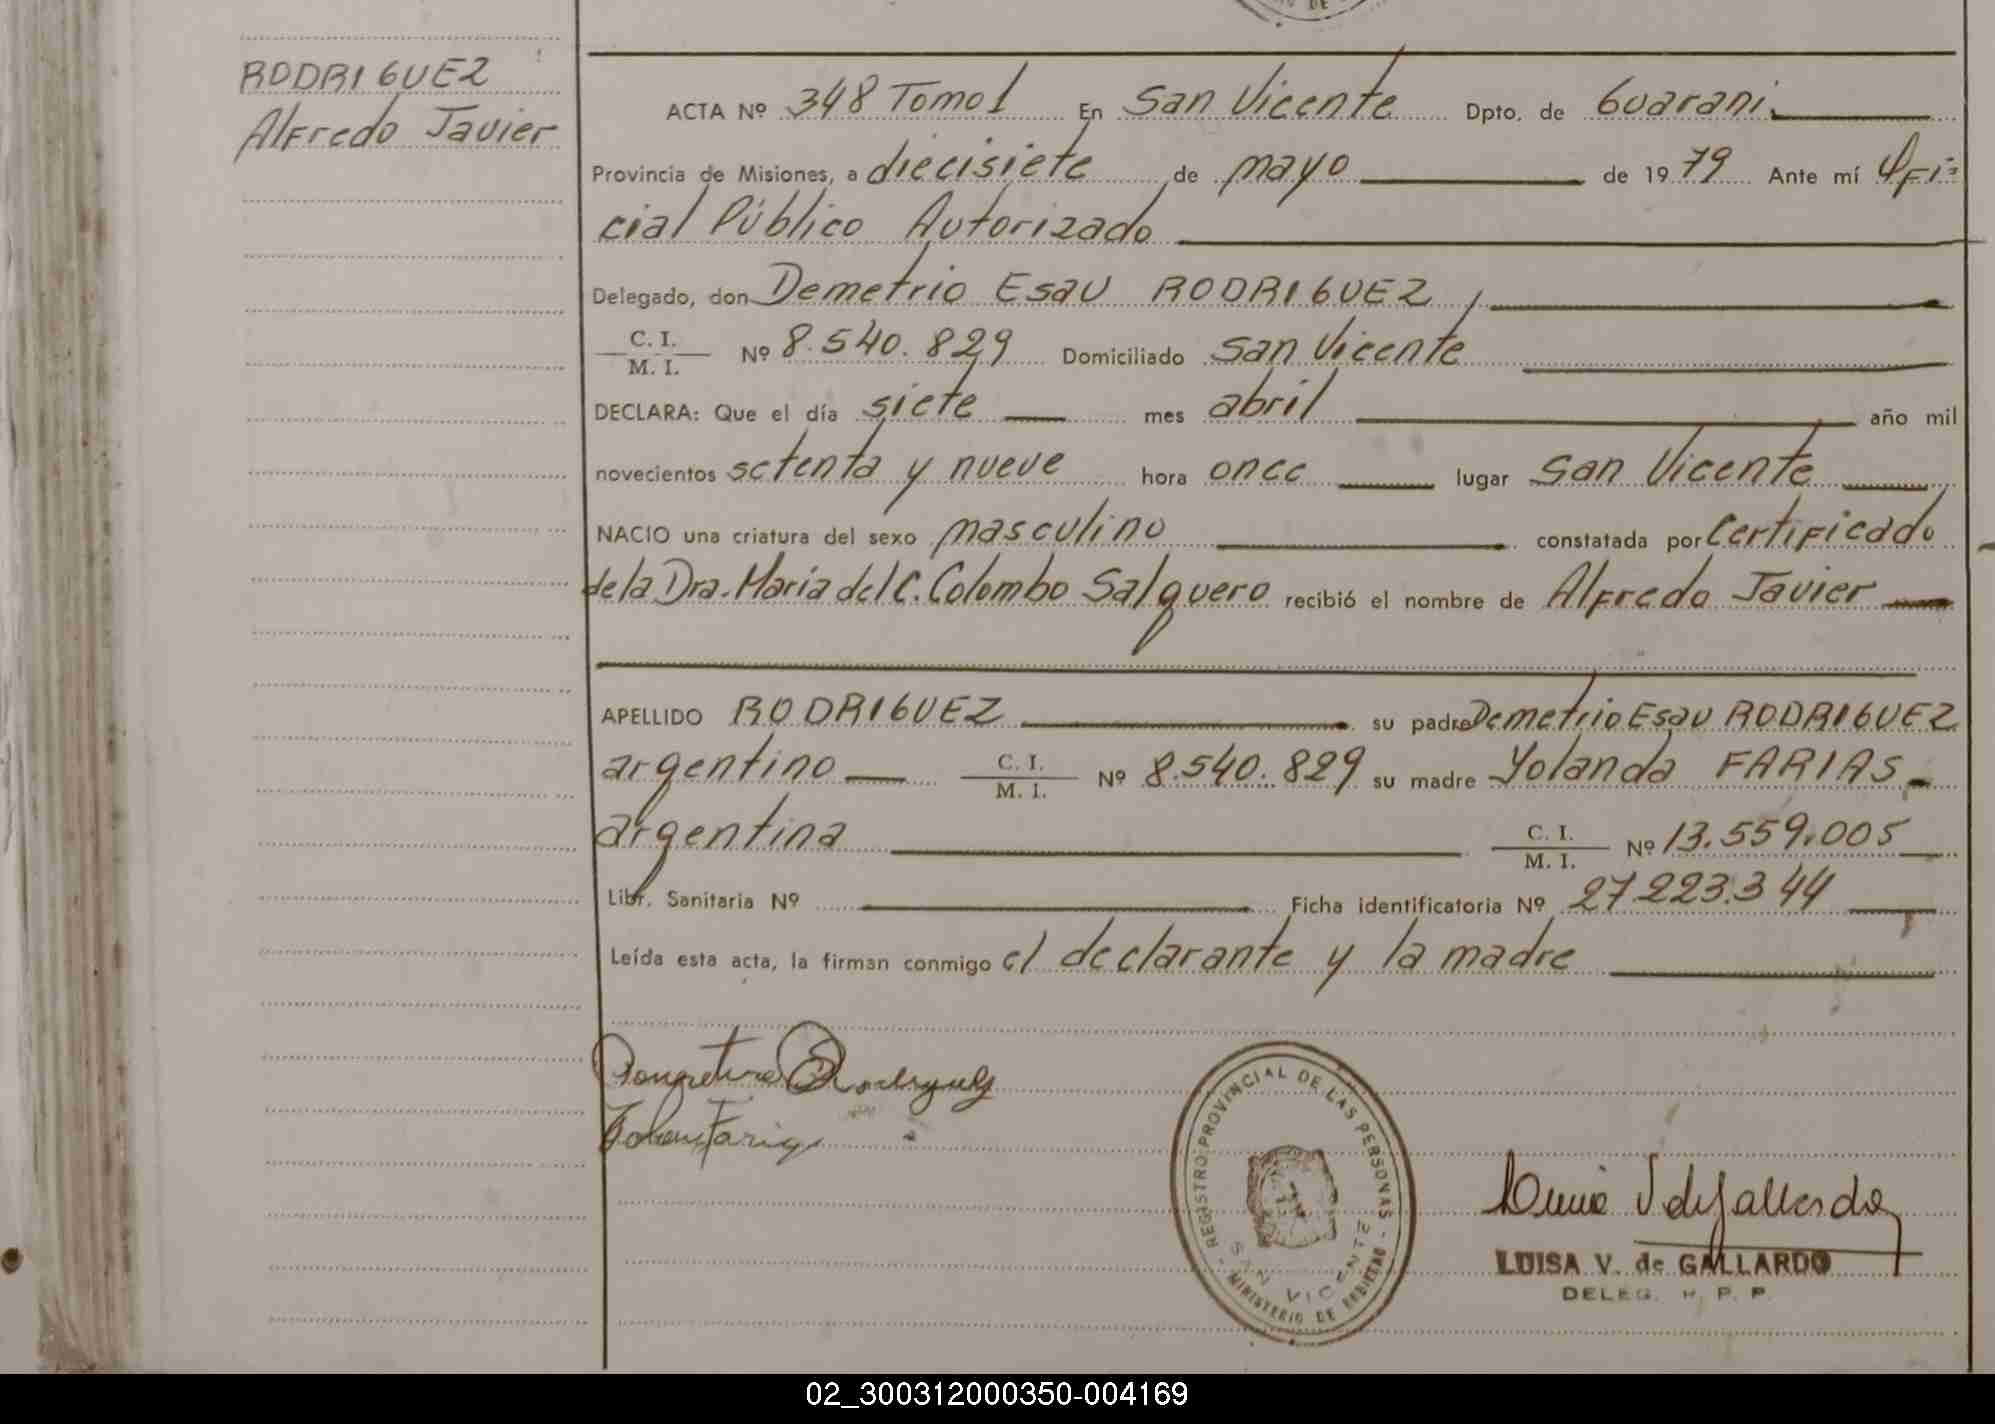 RIO DE
RODRIGUEZ
Alfredo Javier
ACTA Nº 348 Tomo 1 En San Vicente Dpto. de Guarani
Provincia de Misiones, a diecisiete de mayo de 1979 Ante mí Ofi=
cial Público Autorizado
Delegado, don Demetrio Esau RODRIGUEZ,
C. I.
M. I. Nº 8.540.829 Domiciliado San Vicente
DECLARA: Que el día siete mes abril año mil
novecientos setenta y nueve hora once lugar San Vicente
NACIO una criatura del sexo masculino constatada por Certificado
de la Dra. Maria del C. Colombo Salguero recibió el nombre de Alfredo Javier
APELLIDO RODRIGUEZ su padre Demetrio Esau RODRIGUEZ
argentino C. I.
M. I. Nº 8.540.829 su madre Yolanda FARIAS
argentina C. I.
M. I. Nº 13.559.005
Libr. Sanitaria Nº Ficha identificatoria Nº 27.223.344
Leída esta acta, la firman conmigo el declarante y la madre
REGISTRO PROVINCIAL DE LAS PERSONAS
SAN VICENTE
MINISTERIO DE GOBIERNO
LUISA V. de GALLARDO
DELEG. R. P. P.
02_300312000350-004169